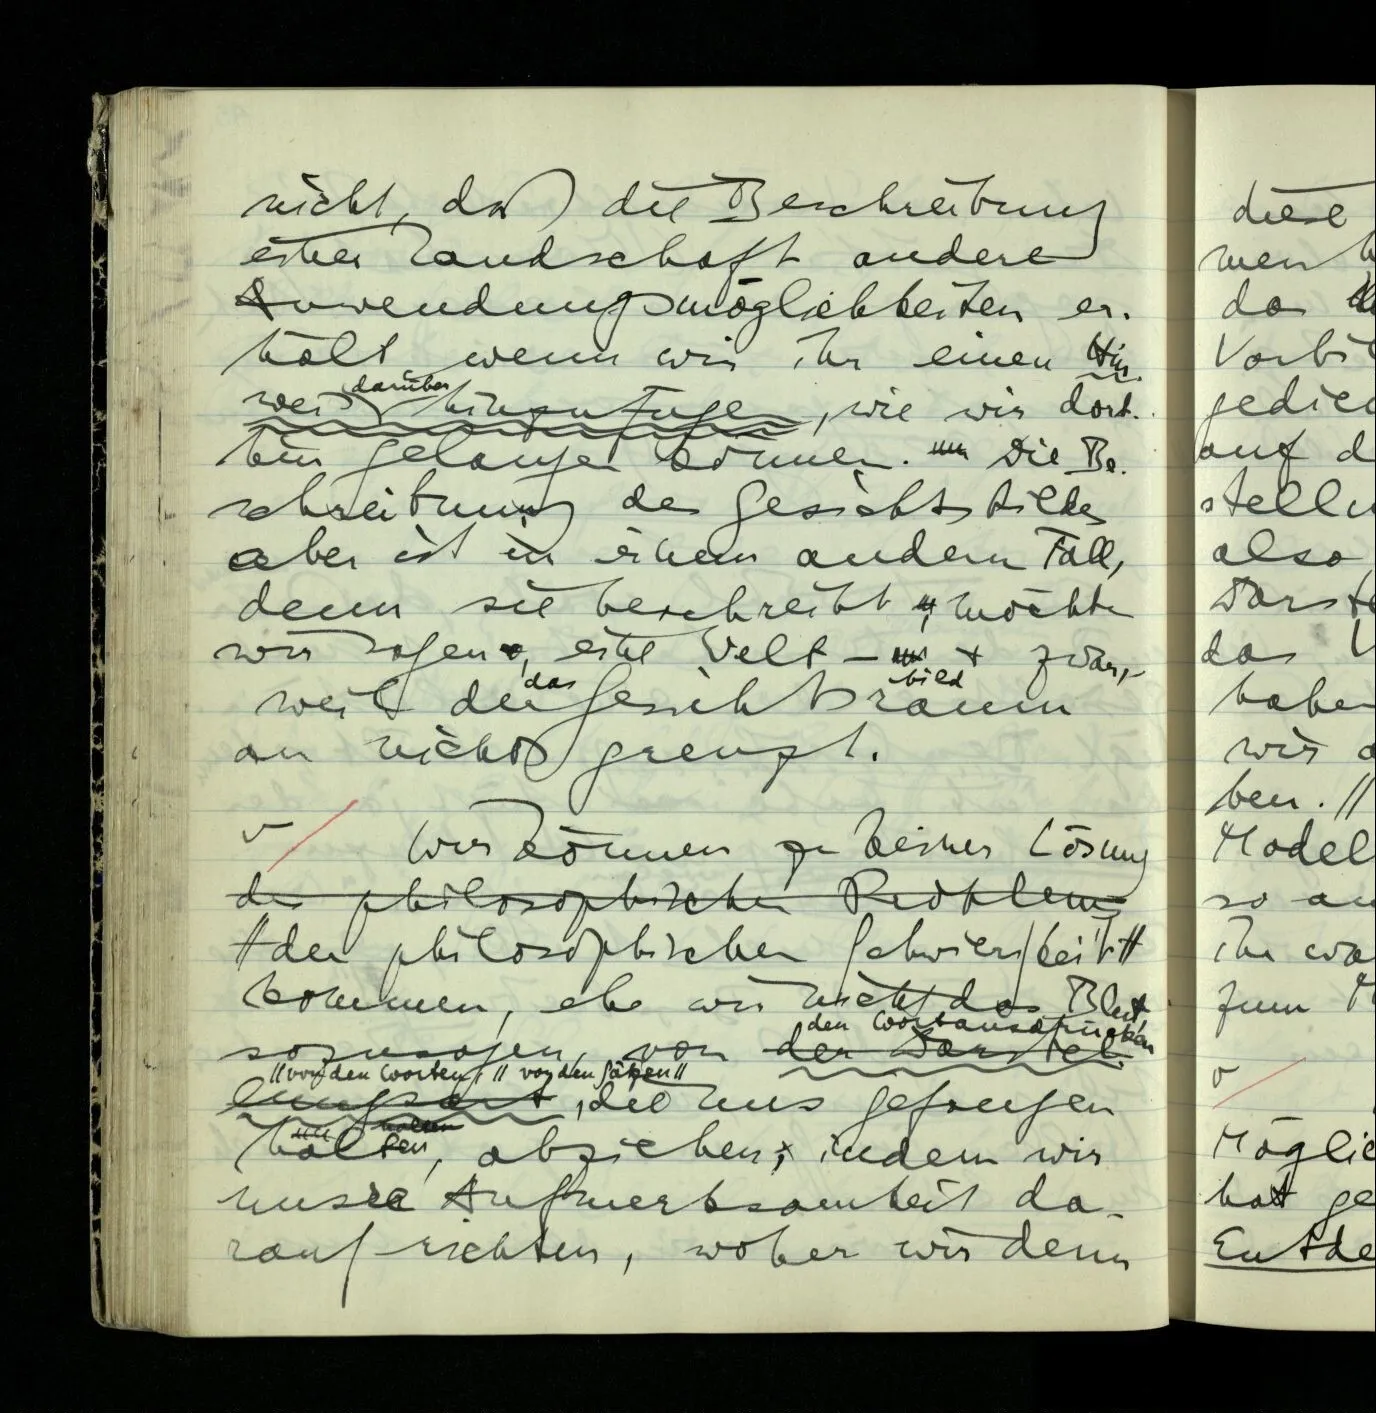 nicht, daß die Beschreibung
einer Landschaft andere
Anwendungsmöglichkeiten er-
hält wenn wir ihr einen Hin-
darüber
weis hinzufügen, wie wir dort-
hin gelangen können. Die Be-
schreibung des Gesichtsbildes
aber ist in einem andern Fall,
denn sie beschreibt, möchte
wir sagen, eine Welt – + zwar,
das bild
weil der Gesichtsraum
an nichts grenzt.
v / Wir können zu keiner Lösung
der philosophischen Probleme
// der philosophischen Schwierigkeit //
kommen, ehe wir nicht das Blut,
den Wortausdrücken
sozusagen, von der Darstel-
// von den Worten // // von den Sätzen //
lungsart, die uns gefangen
halten, abziehen; indem wir
unsre Aufmerksamkeit da-
rauf richten, woher wir denn
diese
wen
das
Vorbil
gedien
auf d
stellu
also
Darste
das V
haben
wir
ben. //
Model
so an
ihr wa
zum
v /
Möglic
hat ge
Entde